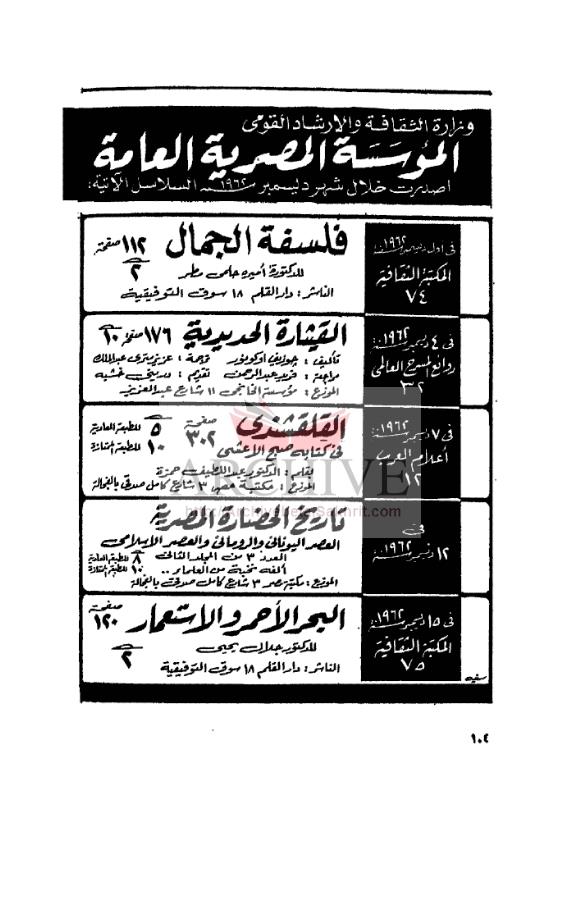 وزارة الثقافة والإرشاد القومى
المؤسسة المصرية العامة
اصدرت خلال شهر ديسمبر سنة ١٩٦٢ السلاسل الآتية:
فى أول ديسمبر سنة ١٩٦٢
المكتبة الثقافية
٧٤
فلسفة الجمال
١١٢ صفحة
٢
للدكتورة أميرة حلمى مطر
الناشر: دار القلم ١٨ سوق التوفيقية
فى ٤ ديسمبر سنة ١٩٦٢
روائع المسرح العالمى
٣٢
القيثارة الحديدية
١٧٦ صفحة
١٠
تأليف: جوزيف أوكونور ترجمة: عزيز مترى عبد الملك
مراجعة: فريد عبد الرحمن تقديم: دريني خشبه
الموزع: مؤسسة الخانجى ١١ شارع عبد العزيز
فى ٧ ديسمبر سنة ١٩٦٢
أعلام العرب
١٢
القلقشندى
صفحة ٣٠٢
٥ للطبعة العادية
١٠ للطبعة الممتازة
فى كتابه صبح الأعشى
بقلم: الدكتور عبد اللطيف حمزة
الموزع: مكتبة مصر ٣ شارع كامل صدقى بالفجالة
فى
١٢ ديسمبر سنة ١٩٦٢
تاريخ الحضارة المصرية
العصر اليونانى والرومانى والعصر الإسلامى
العدد ٣ من المجلد الثانى
٨ للطبعة العادية
ألفه نخبة من العلماء ..
١٠ للطبعة الممتازة
الموزع: مكتبة مصر ٣ شارع كامل صدقى بالفجالة
فى ١٥ ديسمبر سنة ١٩٦٢
المكتبة الثقافية
٧٥
البحر الأحمر والاستعمار
صفحة ١٢٠
٢
للدكتور جلال يحيى
الناشر: دار القلم ١٨ سوق التوفيقية
ARCHIVE
http://Archivebeta.Sakhrit.com
١٠٤